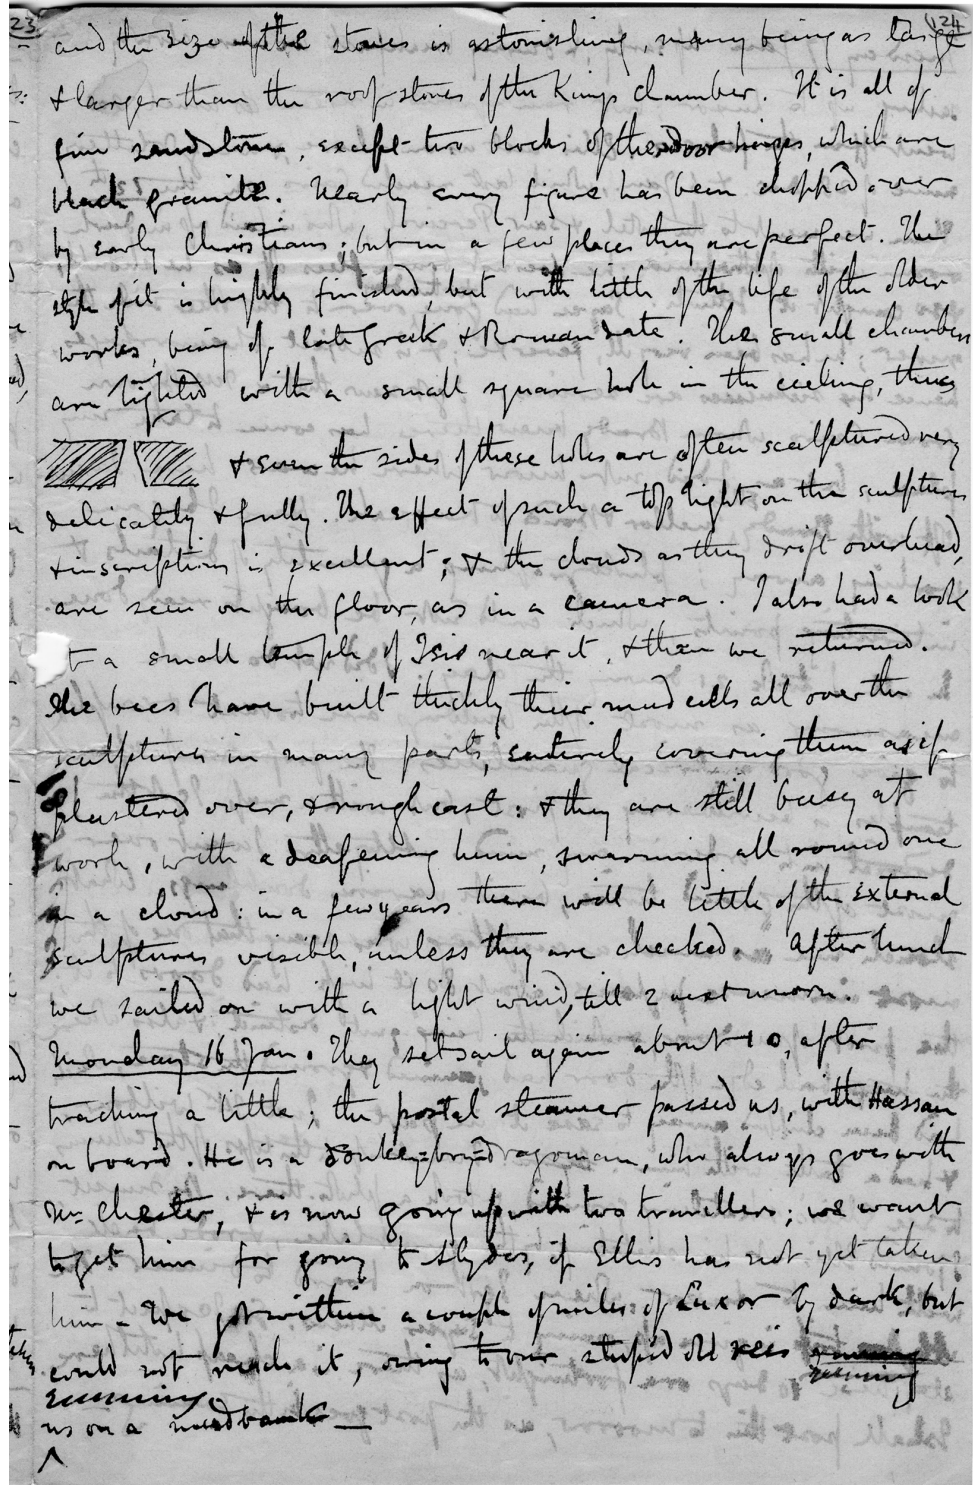 23
124
and the size of the stones is astonishing, many being as large
& larger than the roof stones of the Kings chamber. It is all of
fine sandstone, except two blocks of the door hinges, which are
black granite. Nearly every figure has been chopped over
by early Christians; but in a few places they are perfect. The
style of it is highly finished, but with little of the life of the older
works, being of late Greek & Roman date. The small chambers
are lighted with a small square hole in the cieling, thus
& even the sides of these holes are often sculptured very
delicately & fully. The effect of such a top light on the sculptures
& inscriptions is excellent; & the clouds as they drift overhead,
are seen on the floor, as in a camera. I also had a look
t a small temple of Isis near it, & then we returned.
The bees have built thickly their mud cells all over the
sculptures in many parts, entirely covering them as if
plastered over, & rough cast: & they are still busy at
work, with a deafening hum, swarming all round one
in a cloud: in a few years there will be little of the external
sculptures visible, unless they are checked. After lunch
we sailed on with a light wind, till 2 next morn.
Monday 16 Jan. They set sail again about 10, after
tracking a little; the postal steamer passed us, with Hassan
on board. He is a donkey=boy=dragoman, who always goes with
Mr Chester, & is now going up with two travellers; we want
to get him for going to Abydos, if Ellis has not yet taken
him - We got within a couple of miles of Luxor by dark, but
could not reach it, owing to our stupid old reis running
running
running
us on a mudbank —